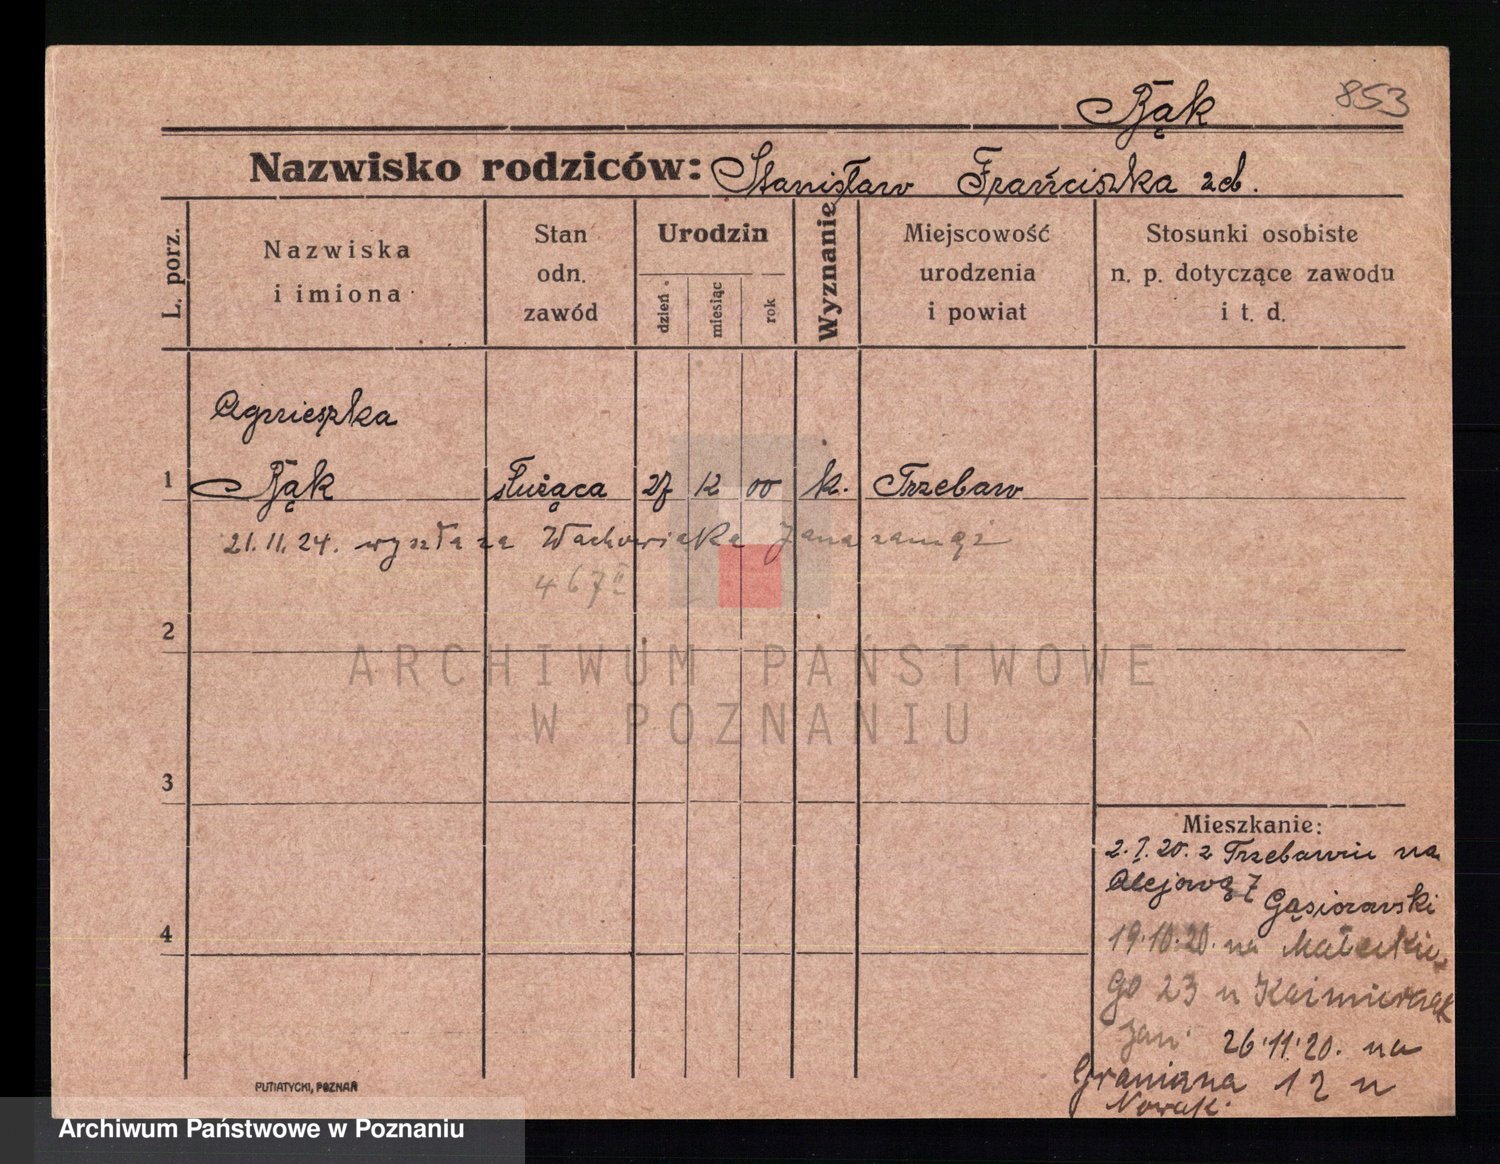 Bąk 853
Nazwisko rodziców: Stanisław Franciszka zd.
L. porz.
Nazwiska
i imiona
Stan
odn.
zawód
Urodzin
dzień
miesiąc
rok
Wyznanie
Miejscowość
urodzenia
i powiat
Stosunki osobiste
n. p. dotyczące zawodu
i t. d.
Agnieszka
1 Bąk służąca 27 12 00 k. Trzebaw
21.11.24. wyszła za Wachowiaka Jana zamąż
467 II
2
3
4
Mieszkanie:
2.7.20. z Trzebawia na
Alejową 7 Gąsiorowski
19.10.20. na Małeckie
go 23 u Kaźmierczak
Jan 26.11.20. na
Graniczna 12 u
Nowak.
PUTIATYCKI, POZNAŃ
ARCHIWUM PAŃSTWOWE
W POZNANIU
Archiwum Państwowe w Poznaniu